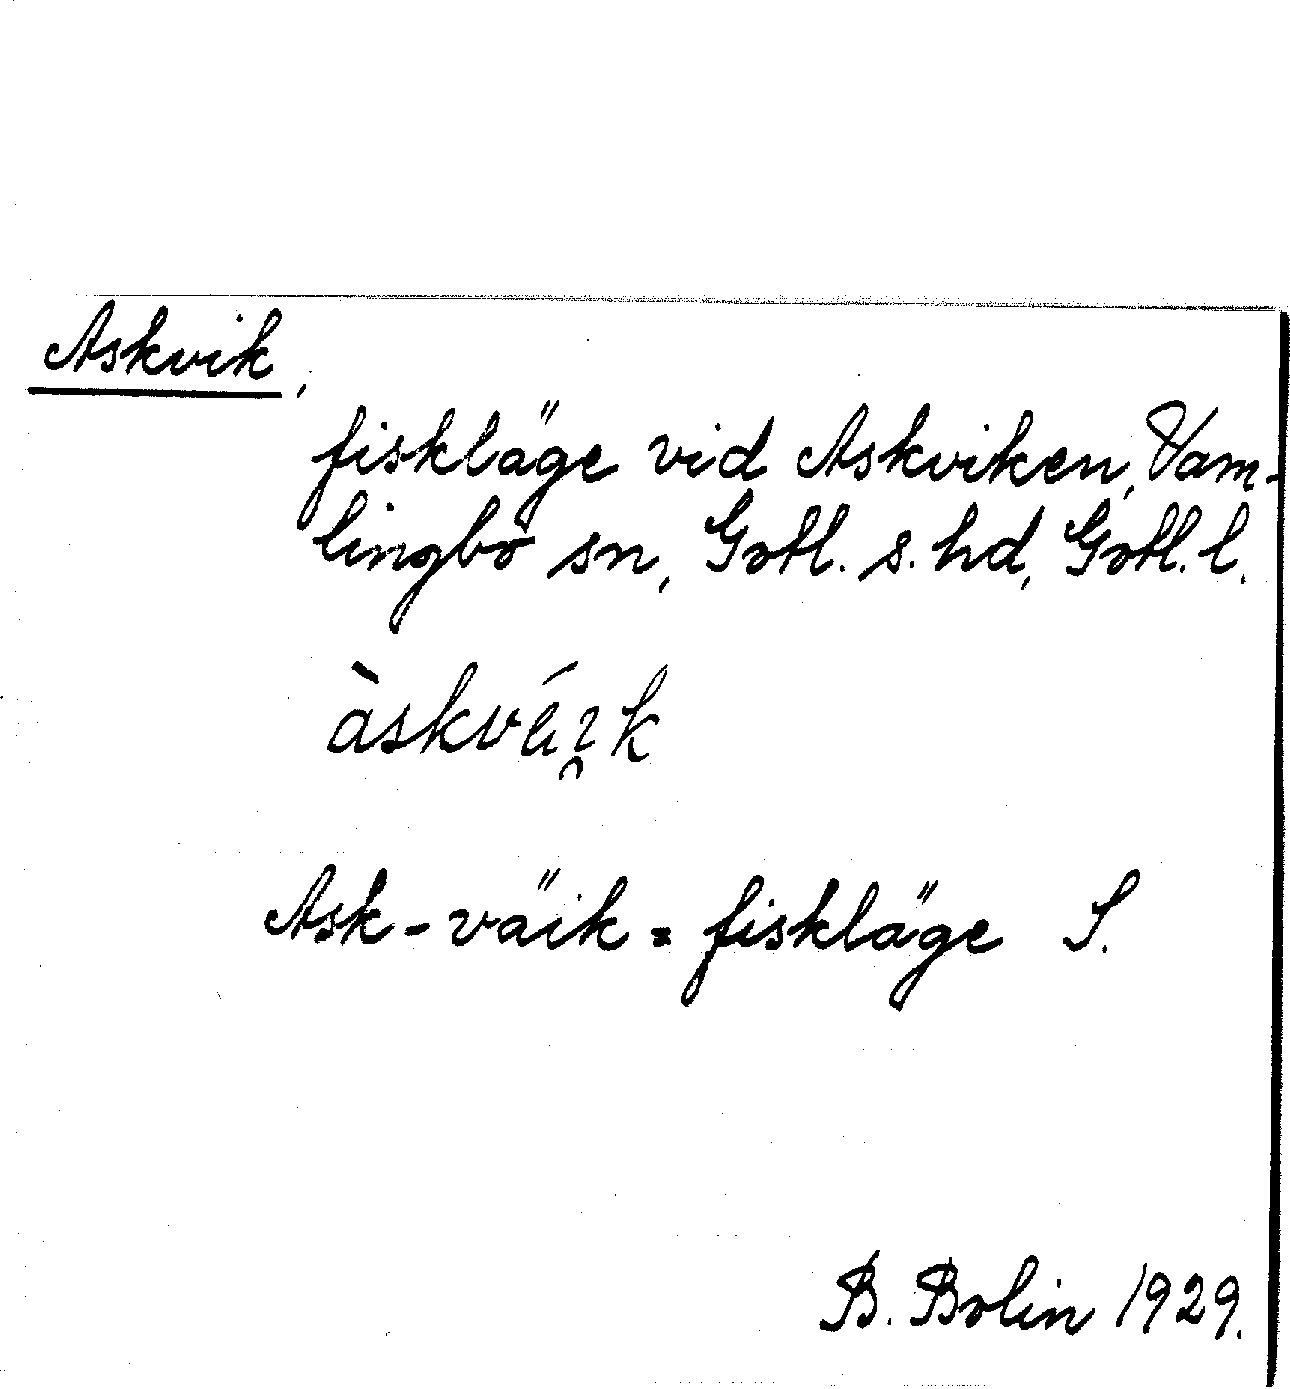 Askvik,
fiskläge vid Askviken, Vam-
lingbo sn, Gotl. s. hd, Gotl. l.
Ask-väik = fiskläge S.
B. Bolin 1929.